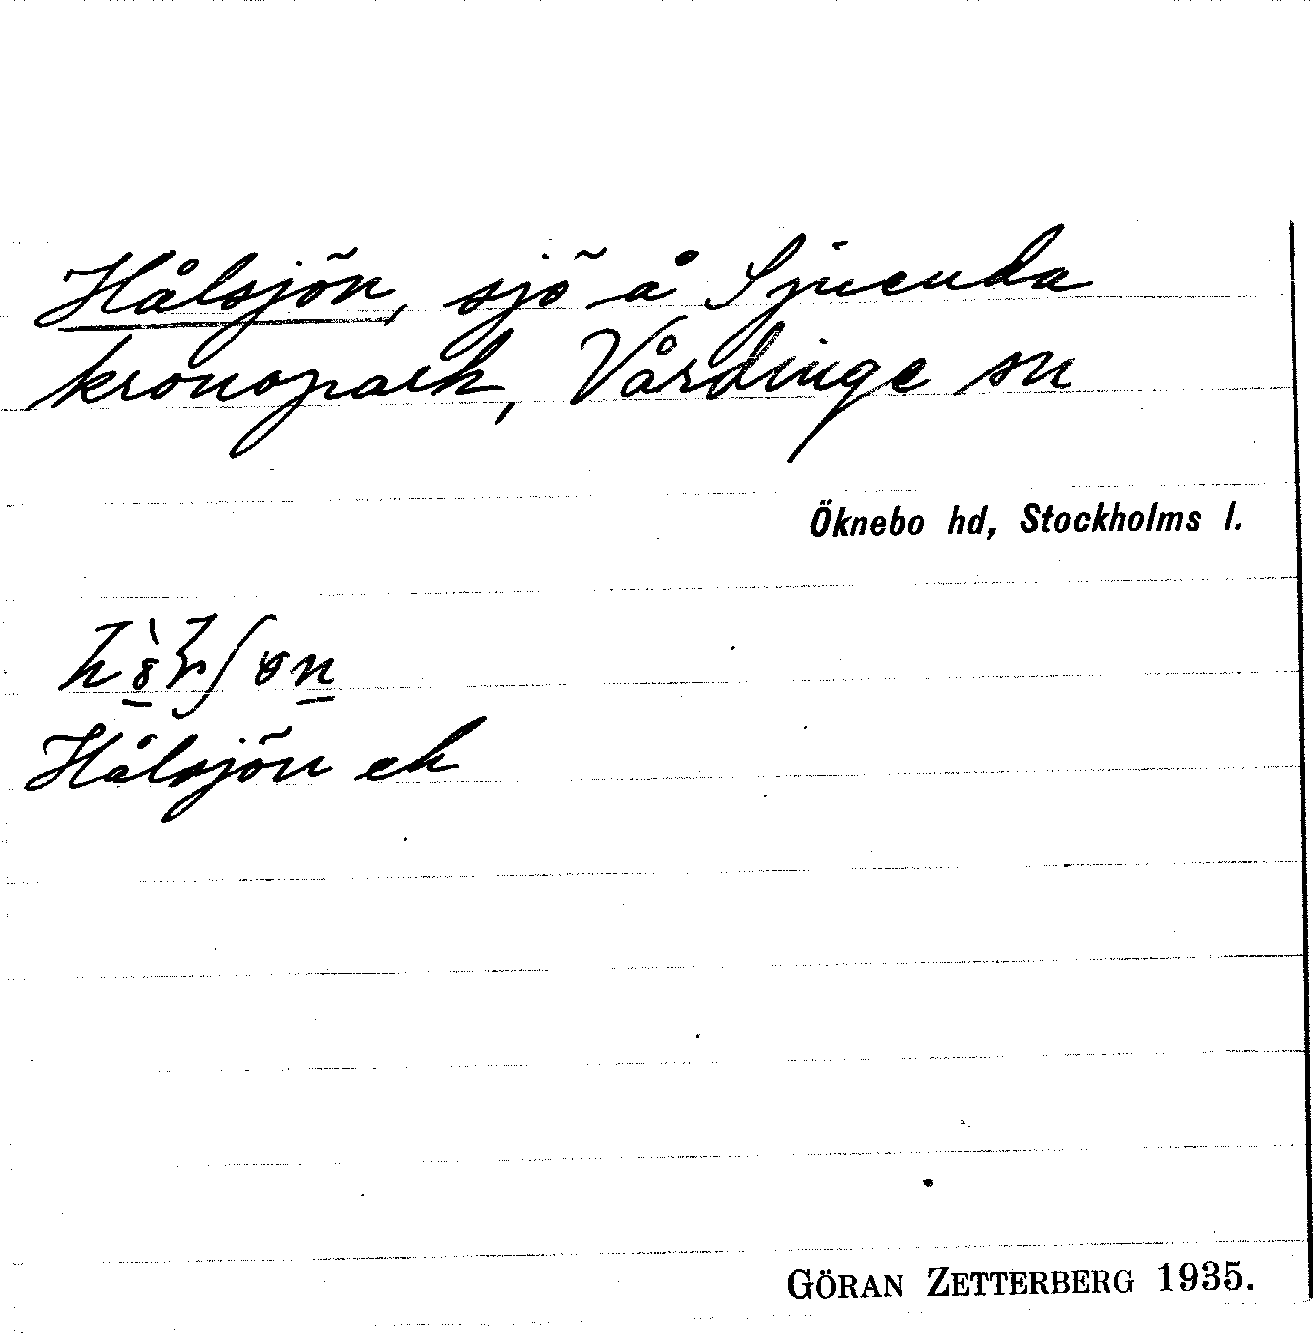 Hålsjön, sjö å Sjuenda
kronopark, Vårdinge sn
Öknebo hd, Stockholms l.
Hålsjön ek
GÖRAN ZETTERBERG 1935.